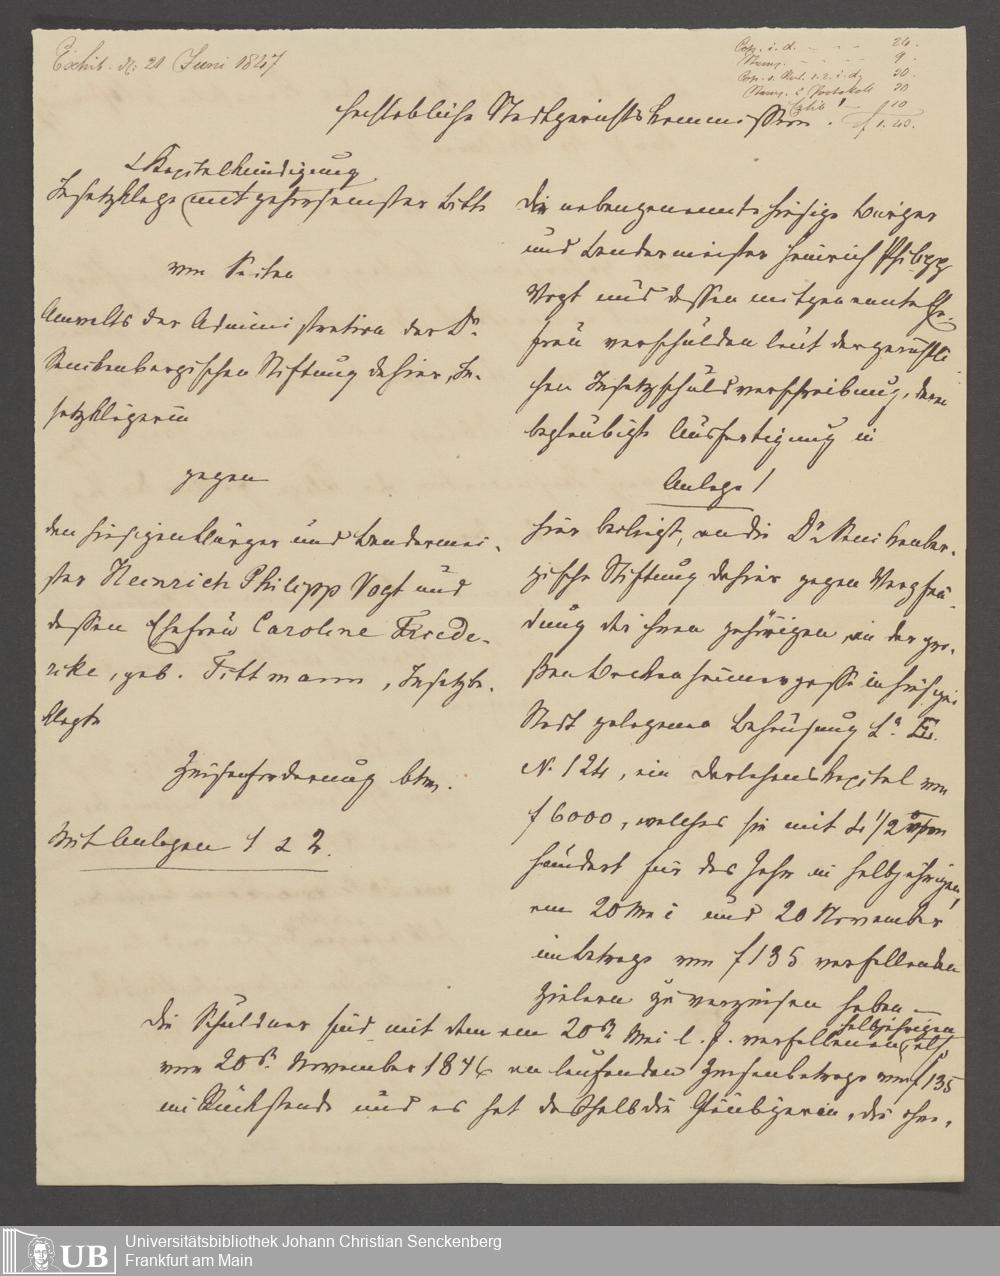 Exhib. d. 21 Juni 1847
Cop. i. d. - - - 24.
Stemp. - - - 9.
Cop. v. Anl. 1. 2. i. d. 30.
Stemp. z. Protokoll 30
10
f 1. 40.
Hochlöbliche Stadtgerichtskommission.
Kapitalkündigung
Insatzklage mit gehorsamster Bitte
von Seiten
Anwalts der Administration der Dr.
Senckenbergischen Stiftung dahier, In-
satzklägerin
gegen
den hiesigen Bürger und Bendermei-
ster Heinrich Philipp Vogt und
dessen Ehefrau Caroline Friede-
rike, geb. Tittmann, Insatzbe-
klagte
Zinsenforderung btr.
Mit Anlagen 1 & 2.
Die nebengenannte hiesige Bürger
und Bendermeister Heinrich Philipp
Vogt und dessen mitgenannte Ehe-
frau verschulden laut der gerichtli-
chen Insatzschuldverschreibung, deren
beglaubigte Ausfertigung in
Anlage 1
hier beiliegt, an die Dr. Senckenber-
gische Stiftung dahier gegen Verpfän-
dung der ihnen gehörigen, in der gro-
ßen Bockenheimergasse in hiesiger
Stadt gelegenen Behausung La. E.
N. 124, ein Darlehenskapital von
f 6000, welches sie mit 4 1/2 vom
hundert für das Jahr in halbjährigen,
am 20 Mai und 20 November
im Betrage von f 135 verfallenden
Zielern zu verzinsen haben. —
Die Schuldner sind mit dem am 20n. Mai l. J. verfallenen halbjährigen, als
vom 20n. November 1846 an laufenden Zinsenbetrage von f 135
im Rückstande und es hat deshalb die Gläubigerin, die ohne-
Universitätsbibliothek Johann Christian Senckenberg
Frankfurt am Main
UB